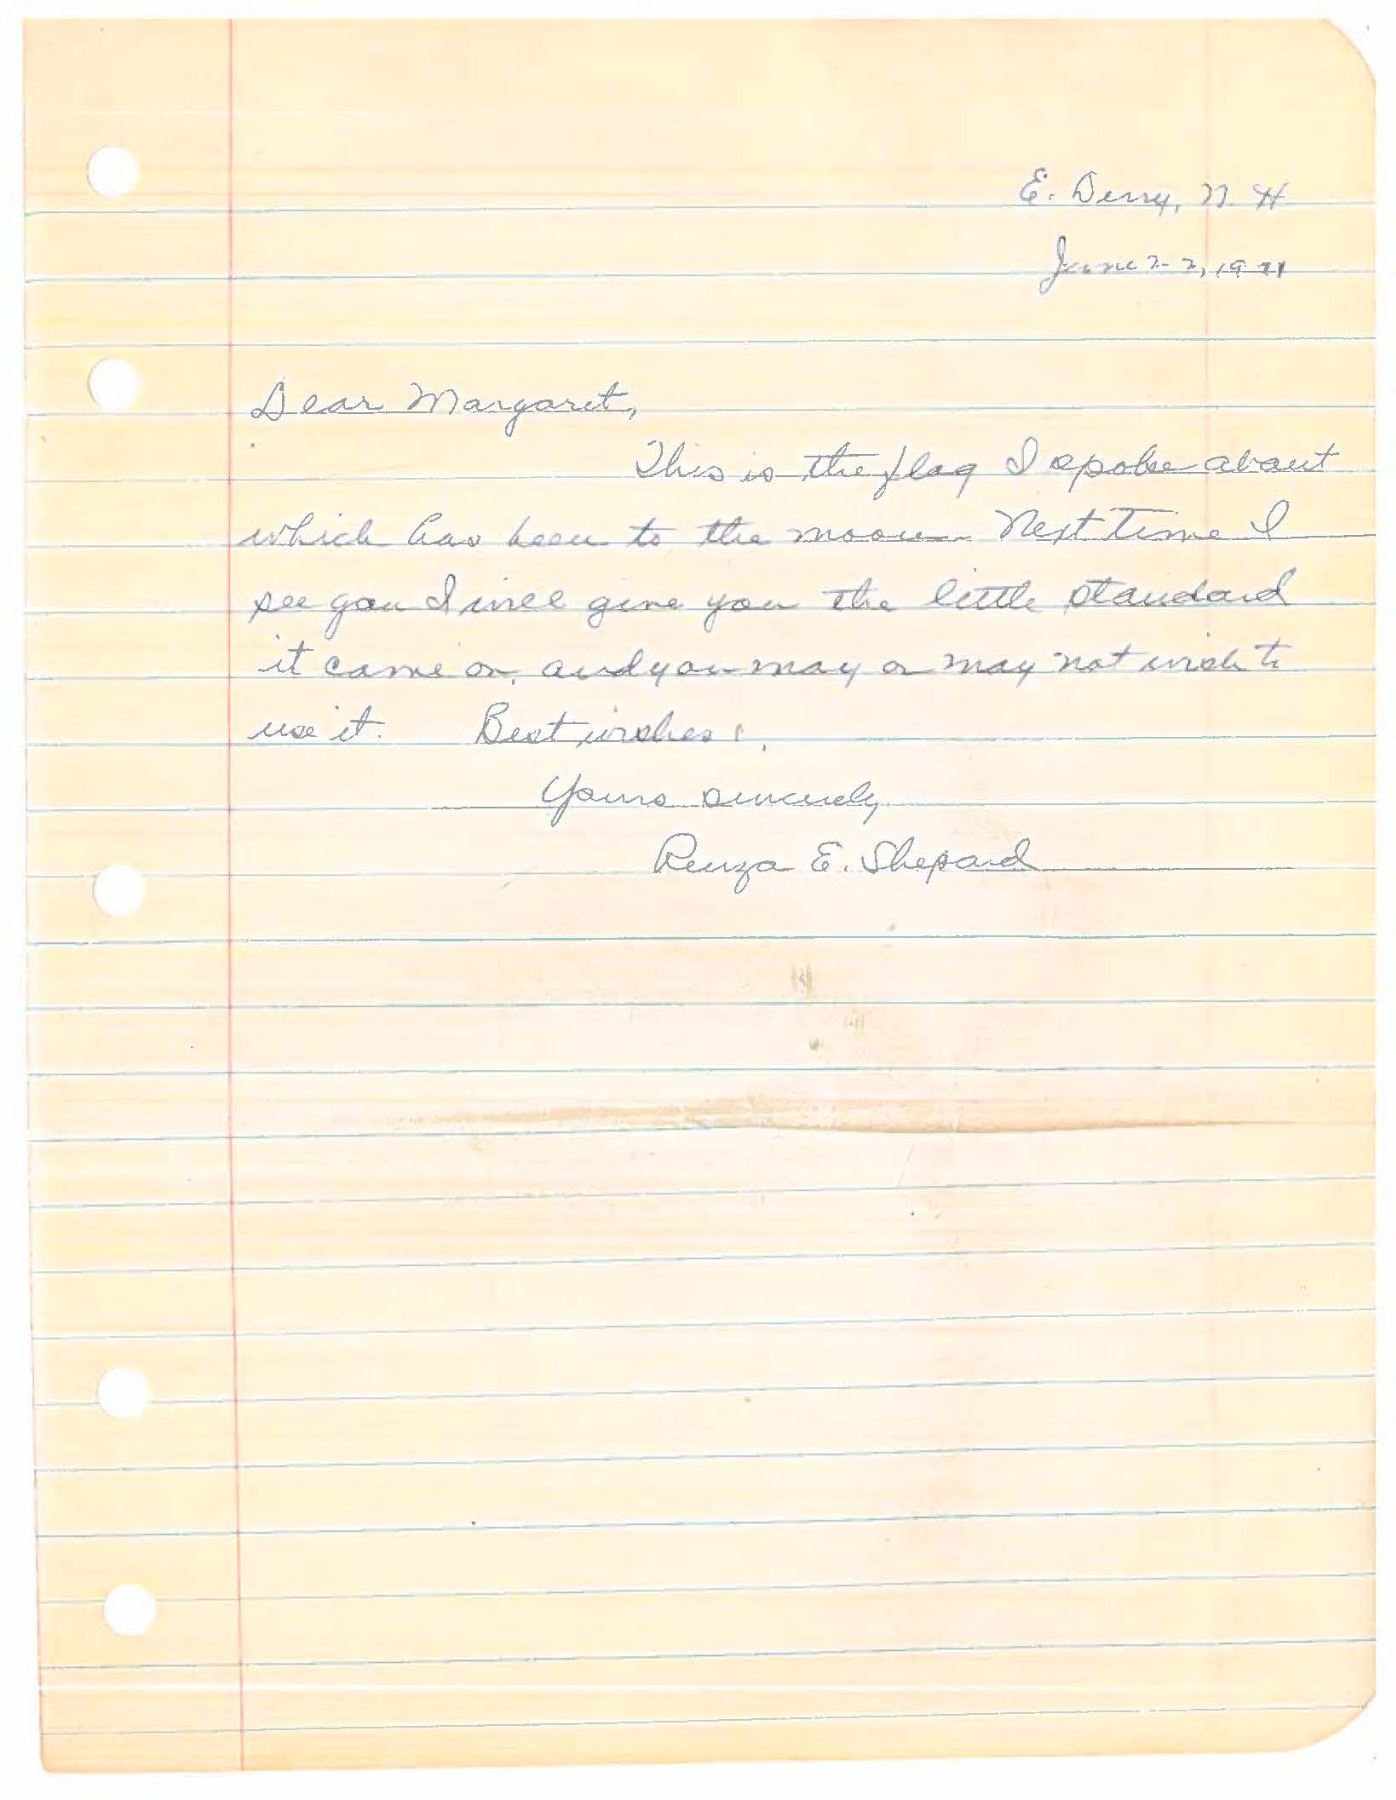 E. Derry, N. H
June 22, 1971
Dear Margaret,
This is the flag I spoke about
which has been to the moon. Next time I
see you I will give you the little standard
it came on, and you may or may not wish to
use it. Best wishes!
Yours sincerely,
Renza E. Shepard